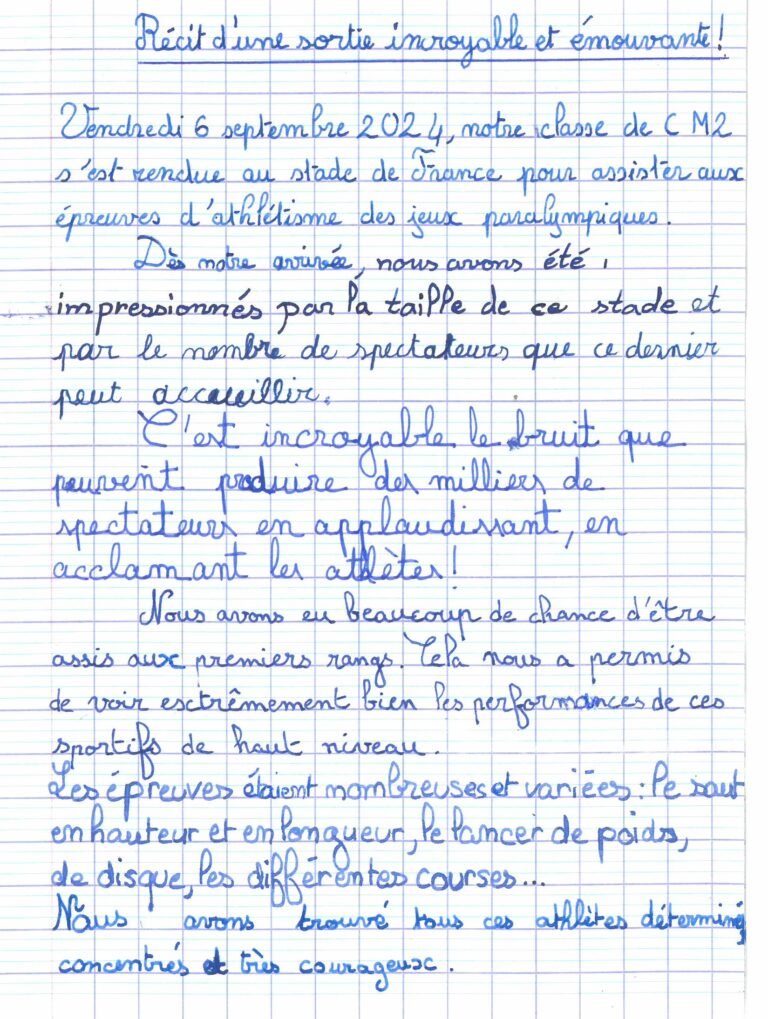 Récit d'une sortie incroyable et émouvante !
Vendredi 6 septembre 2024, notre classe de CM2
s'est rendue au stade de France pour assister aux
épreuves d'athlétisme des jeux paralympiques.
Dès notre arrivée, nous avons été
impressionnés par la taille de ce stade et
par le nombre de spectateurs que ce dernier
peut accueillir.
C'est incroyable le bruit que
peuvent produire des milliers de
spectateurs en applaudissant, en
acclamant les athlètes !
Nous avons eu beaucoup de chance d'être
assis aux premiers rangs. Cela nous a permis
de voir extrêmement bien les performances de ces
sportifs de haut niveau.
Les épreuves étaient nombreuses et variées : le saut
en hauteur et en longueur, le lancer de poids,
de disque, les différentes courses...
Nous avons trouvé tous ces athlètes déterminés,
concentrés et très courageux.